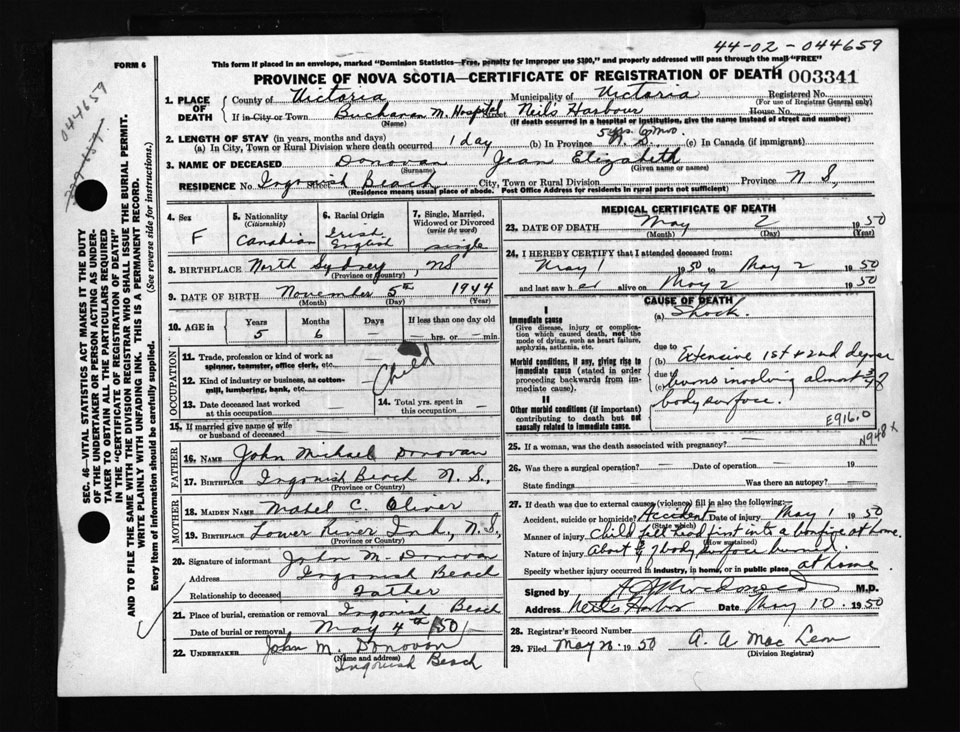 44-02-044659
This form if placed in an envelope, marked "Dominion Statistics—Free, penalty for improper use $300," and properly addressed will pass through the mail "FREE"
FORM 6
PROVINCE OF NOVA SCOTIA—CERTIFICATE OF REGISTRATION OF DEATH 003341
044659
SEC. 46—VITAL STATISTICS ACT MAKES IT THE DUTY
OF THE UNDERTAKER OR PERSON ACTING AS UNDER-
TAKER TO OBTAIN ALL THE PARTICULARS REQUIRED
IN THE "CERTIFICATE OF REGISTRATION OF DEATH"
AND TO FILE THE SAME WITH THE DIVISION REGISTRAR WHO SHALL ISSUE THE BURIAL PERMIT.
WRITE PLAINLY WITH UNFADING INK. THIS IS A PERMANENT RECORD.
Every item of information should be carefully supplied. (See reverse side for instructions.)
1. PLACE OF DEATH County of Victoria Municipality of Victoria Registered No.
(For use of Registrar General only)
If in City or Town Buchanan M. Hospital Street Neil's Harbour House No.
(Name) (If death occurred in a hospital or institution, give the name instead of street and number)
2. LENGTH OF STAY (in years, months and days) 5 yrs 6 mo.
(a) In City, Town or Rural Division where death occurred 1 day (b) In Province N.S. (c) In Canada (if immigrant)
3. NAME OF DECEASED Donovan Jean Elizabeth
(Surname) (Given name or names)
RESIDENCE No. Ingonish Beach City, Town or Rural Division Province N S,
(Residence means usual place of abode. Post Office Address for residents in rural parts not sufficient)
4. Sex F
5. Nationality (Citizenship) Canadian
6. Racial Origin Irish English
7. Single, Married, Widowed or Divorced (write the word) single
8. BIRTHPLACE North Sydney, NS
(Province or Country)
9. DATE OF BIRTH November 5th 1944
(Month) (Day) (Year)
10. AGE in Years Months Days If less than one day old
5 6 hrs. or min.
OCCUPATION
11. Trade, profession or kind of work as
spinner, teamster, office clerk, etc.
Child
12. Kind of industry or business, as cotton-
mill, lumbering, bank, etc.
13. Date deceased last worked
at this occupation
14. Total yrs. spent in
this occupation
15. If married give name of wife
or husband of deceased
FATHER
16. Name John Michael Donovan
17. Birthplace Ingonish Beach N.S.,
(Province or Country)
MOTHER
18. Maiden Name Mabel C. Oliver
19. Birthplace Lower River Inh., N.S,
(Province or Country)
20. Signature of informant John M. Donovan
Address Ingonish Beach
Relationship to deceased Father
21. Place of burial, cremation or removal Ingonish Beach
Date of burial or removal May 4th /50/
22. UNDERTAKER John M. Donovan
(Name and address)
Ingonish Beach
MEDICAL CERTIFICATE OF DEATH
23. DATE OF DEATH May 2 1950
(Month) (Day) (Year)
24. I HEREBY CERTIFY that I attended deceased from:
May 1 1950 to May 2 1950
and last saw her alive on May 2 1950
CAUSE OF DEATH
Immediate cause
Give disease, injury or complica-
tion which caused death, not the
mode of dying, such as heart failure,
asphyxia, asthenia, etc.
(a) Shock.
due to
Morbid conditions, if any, giving rise to
immediate cause (stated in order
proceeding backwards from im-
mediate cause).
(b) Extensive 1st & 2nd degree
due to
(c) burns involving almost 3/4 of
body surface.
II
Other morbid conditions (if important)
contributing to death but not causally
related to immediate cause.
E916.0
N948x
25. If a woman, was the death associated with pregnancy?
26. Was there a surgical operation? Date of operation 19
State findings Was there an autopsy?
27. If death was due to external causes (violence) fill in also the following:
Accident, suicide or homicide? Accident Date of injury May 1 1950
(State which)
Manner of injury Child fell head first into a bonfire at home.
(How sustained)
Nature of injury About 3/4 of body surface burned.
Specify whether injury occurred in industry, in home, or in public place at home
Signed by M.D.
Address Neil's Harbor Date May 10 1950
28. Registrar's Record Number
29. Filed May 20. 1950 A. A Mac Lean
(Division Registrar)